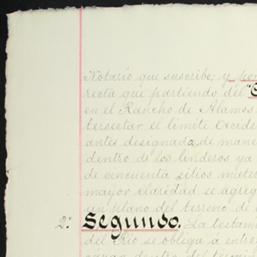 Notario que suscribe, y
recta que partiendo del "C
en el Rancho de Alamos
tersectar el limite Occide
antes designada de mane
dentro de los linderos ya
de cincuenta sitios
mayor claridad se agreg
un plano del terreno de
2º Segundo. La testam
del Rio se obliga á entre